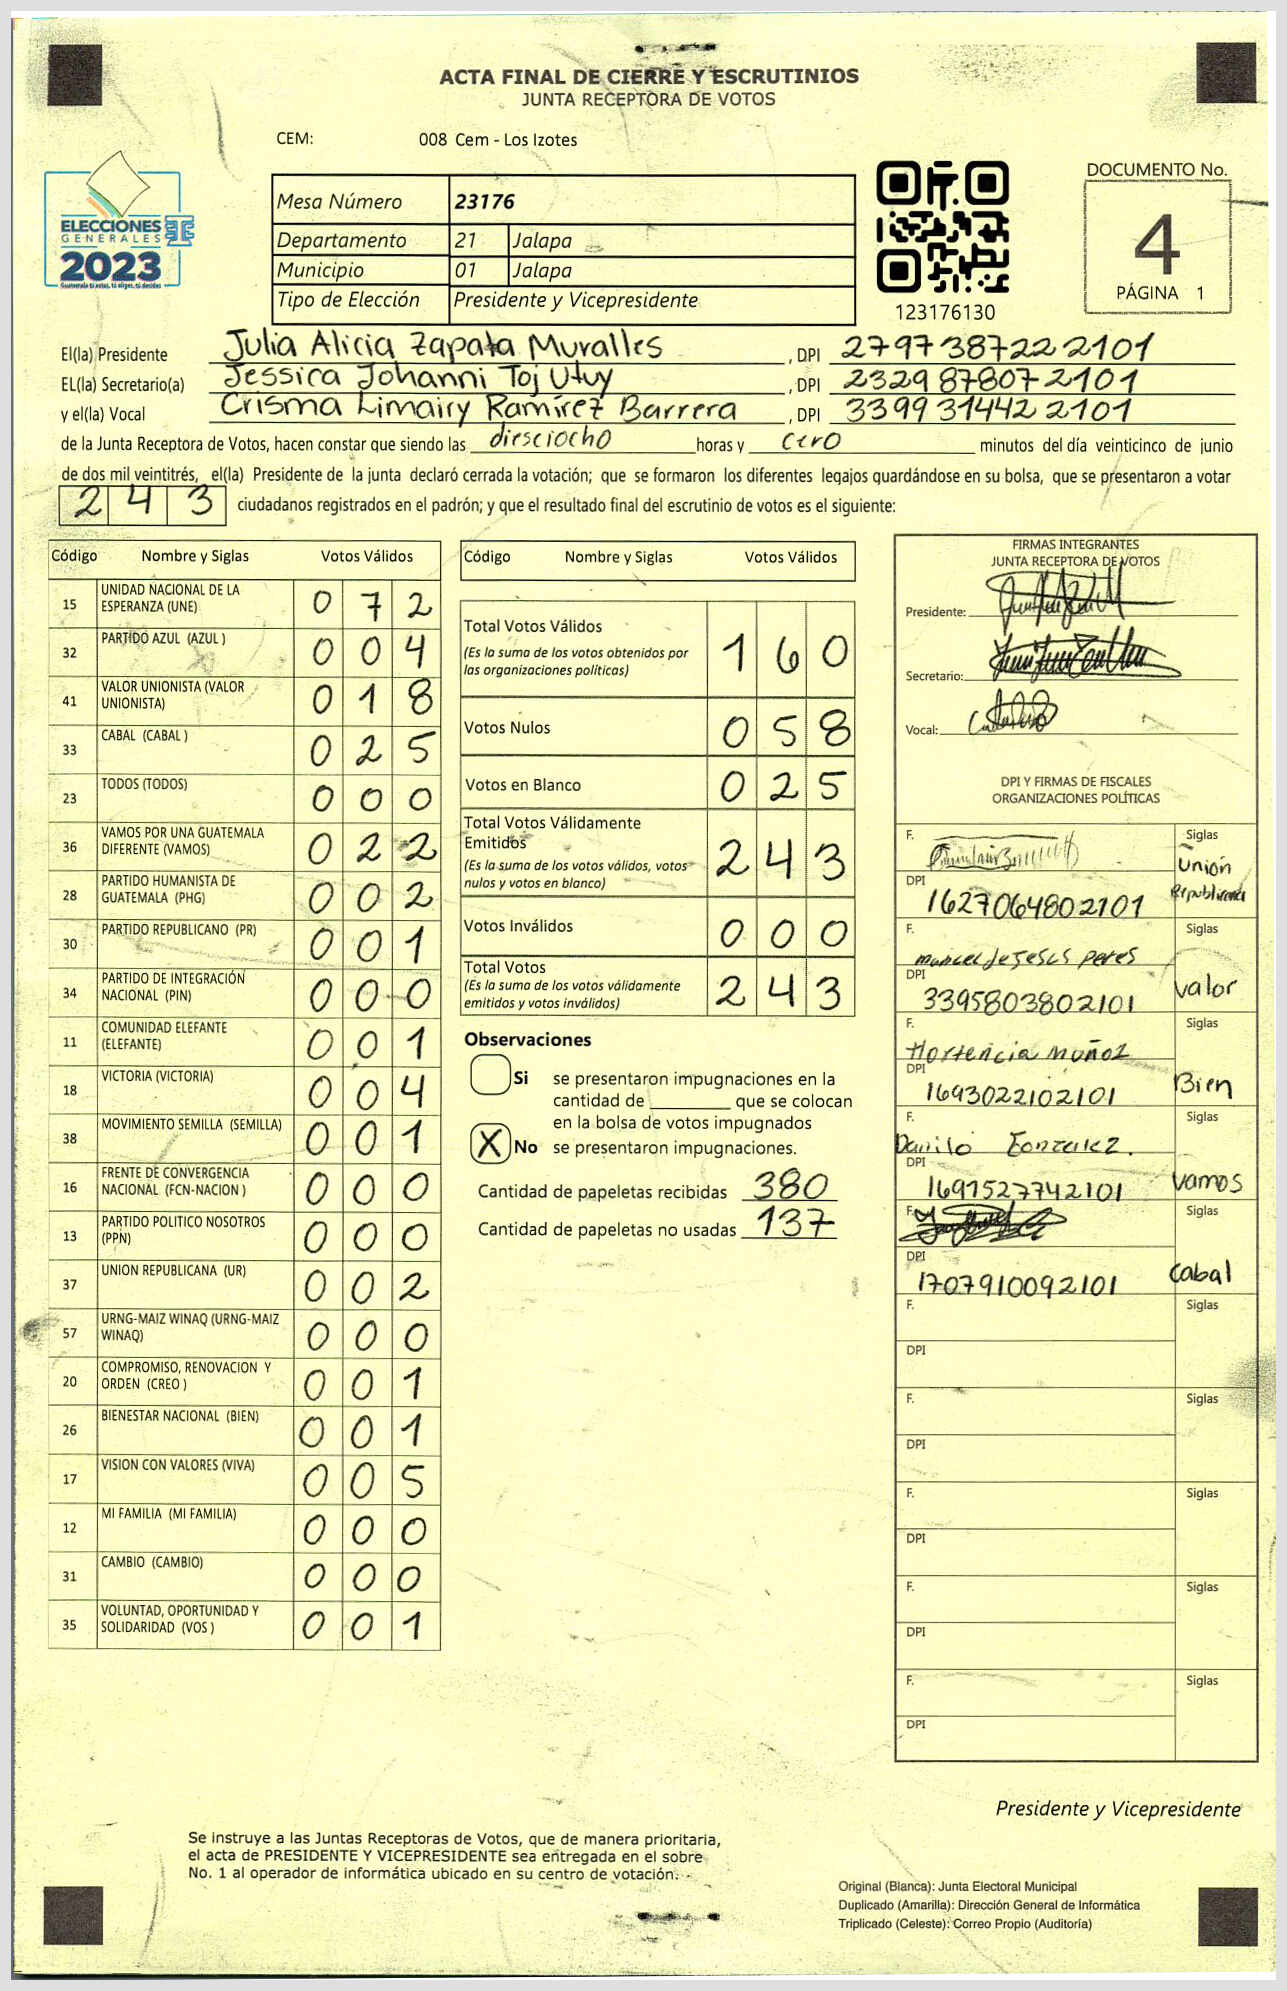 ACTA FINAL DE CIERRE Y ESCRUTINIOS
JUNTA RECEPTORA DE VOTOS
CEM: 008 Cem - Los Izotes
ELECCIONES
GENERALES
2023
Guatemala tú votas, tú eliges, tú decides
Mesa Número 23176
Departamento 21 Jalapa
Municipio 01 Jalapa
Tipo de Elección Presidente y Vicepresidente
123176130
DOCUMENTO No.
4
PÁGINA 1
El(la) Presidente Julia Alicia Zapata Muralles , DPI 2797387222101
EL(la) Secretario(a) Jessica Johanni Toj Utuy , DPI 2329878072101
y el(la) Vocal Crisma Limairy Ramírez Barrera , DPI 3399314422101
de la Junta Receptora de Votos, hacen constar que siendo las diesciocho horas y cero minutos del día veinticinco de junio
de dos mil veintitrés, el(la) Presidente de la junta declaró cerrada la votación; que se formaron los diferentes legajos guardándose en su bolsa, que se presentaron a votar
243 ciudadanos registrados en el padrón; y que el resultado final del escrutinio de votos es el siguiente:
Código Nombre y Siglas Votos Válidos
15 UNIDAD NACIONAL DE LA ESPERANZA (UNE) 072
32 PARTIDO AZUL (AZUL ) 004
41 VALOR UNIONISTA (VALOR UNIONISTA) 018
33 CABAL (CABAL ) 025
23 TODOS (TODOS) 000
36 VAMOS POR UNA GUATEMALA DIFERENTE (VAMOS) 022
28 PARTIDO HUMANISTA DE GUATEMALA (PHG) 002
30 PARTIDO REPUBLICANO (PR) 001
34 PARTIDO DE INTEGRACIÓN NACIONAL (PIN) 000
11 COMUNIDAD ELEFANTE (ELEFANTE) 001
18 VICTORIA (VICTORIA) 004
38 MOVIMIENTO SEMILLA (SEMILLA) 001
16 FRENTE DE CONVERGENCIA NACIONAL (FCN-NACION ) 000
13 PARTIDO POLITICO NOSOTROS (PPN) 000
37 UNION REPUBLICANA (UR) 002
57 URNG-MAIZ WINAQ (URNG-MAIZ WINAQ) 000
20 COMPROMISO, RENOVACION Y ORDEN (CREO ) 001
26 BIENESTAR NACIONAL (BIEN) 001
17 VISION CON VALORES (VIVA) 005
12 MI FAMILIA (MI FAMILIA) 000
31 CAMBIO (CAMBIO) 000
35 VOLUNTAD, OPORTUNIDAD Y SOLIDARIDAD (VOS ) 001
Código Nombre y Siglas Votos Válidos
Total Votos Válidos 160
(Es la suma de los votos obtenidos por
las organizaciones políticas)
Votos Nulos 058
Votos en Blanco 025
Total Votos Válidamente
Emitidos 243
(Es la suma de los votos válidos, votos
nulos y votos en blanco)
Votos Inválidos 000
Total Votos 243
(Es la suma de los votos válidamente
emitidos y votos inválidos)
Observaciones
Si se presentaron impugnaciones en la
cantidad de ________ que se colocan
en la bolsa de votos impugnados
X No se presentaron impugnaciones.
Cantidad de papeletas recibidas 380
Cantidad de papeletas no usadas 137
FIRMAS INTEGRANTES
JUNTA RECEPTORA DE VOTOS
Presidente:
Secretario:
Vocal:
DPI Y FIRMAS DE FISCALES
ORGANIZACIONES POLÍTICAS
F. Siglas
Unión
Republicana
DPI 1627064802101
F. Siglas
manuel de Jesus Peres
DPI 3395803802101 valor
F. Siglas
Hortencia Muñoz
DPI 1693022102101 Bien
F. Siglas
Danilo Gonzalez.
DPI 1691527742101 vamos
F. Siglas
DPI 1707910092101 cabal
F. Siglas
DPI
F. Siglas
DPI
F. Siglas
DPI
F. Siglas
DPI
F. Siglas
DPI
Presidente y Vicepresidente
Se instruye a las Juntas Receptoras de Votos, que de manera prioritaria,
el acta de PRESIDENTE Y VICEPRESIDENTE sea entregada en el sobre
No. 1 al operador de informática ubicado en su centro de votación.
Original (Blanca): Junta Electoral Municipal
Duplicado (Amarilla): Dirección General de Informática
Triplicado (Celeste): Correo Propio (Auditoría)